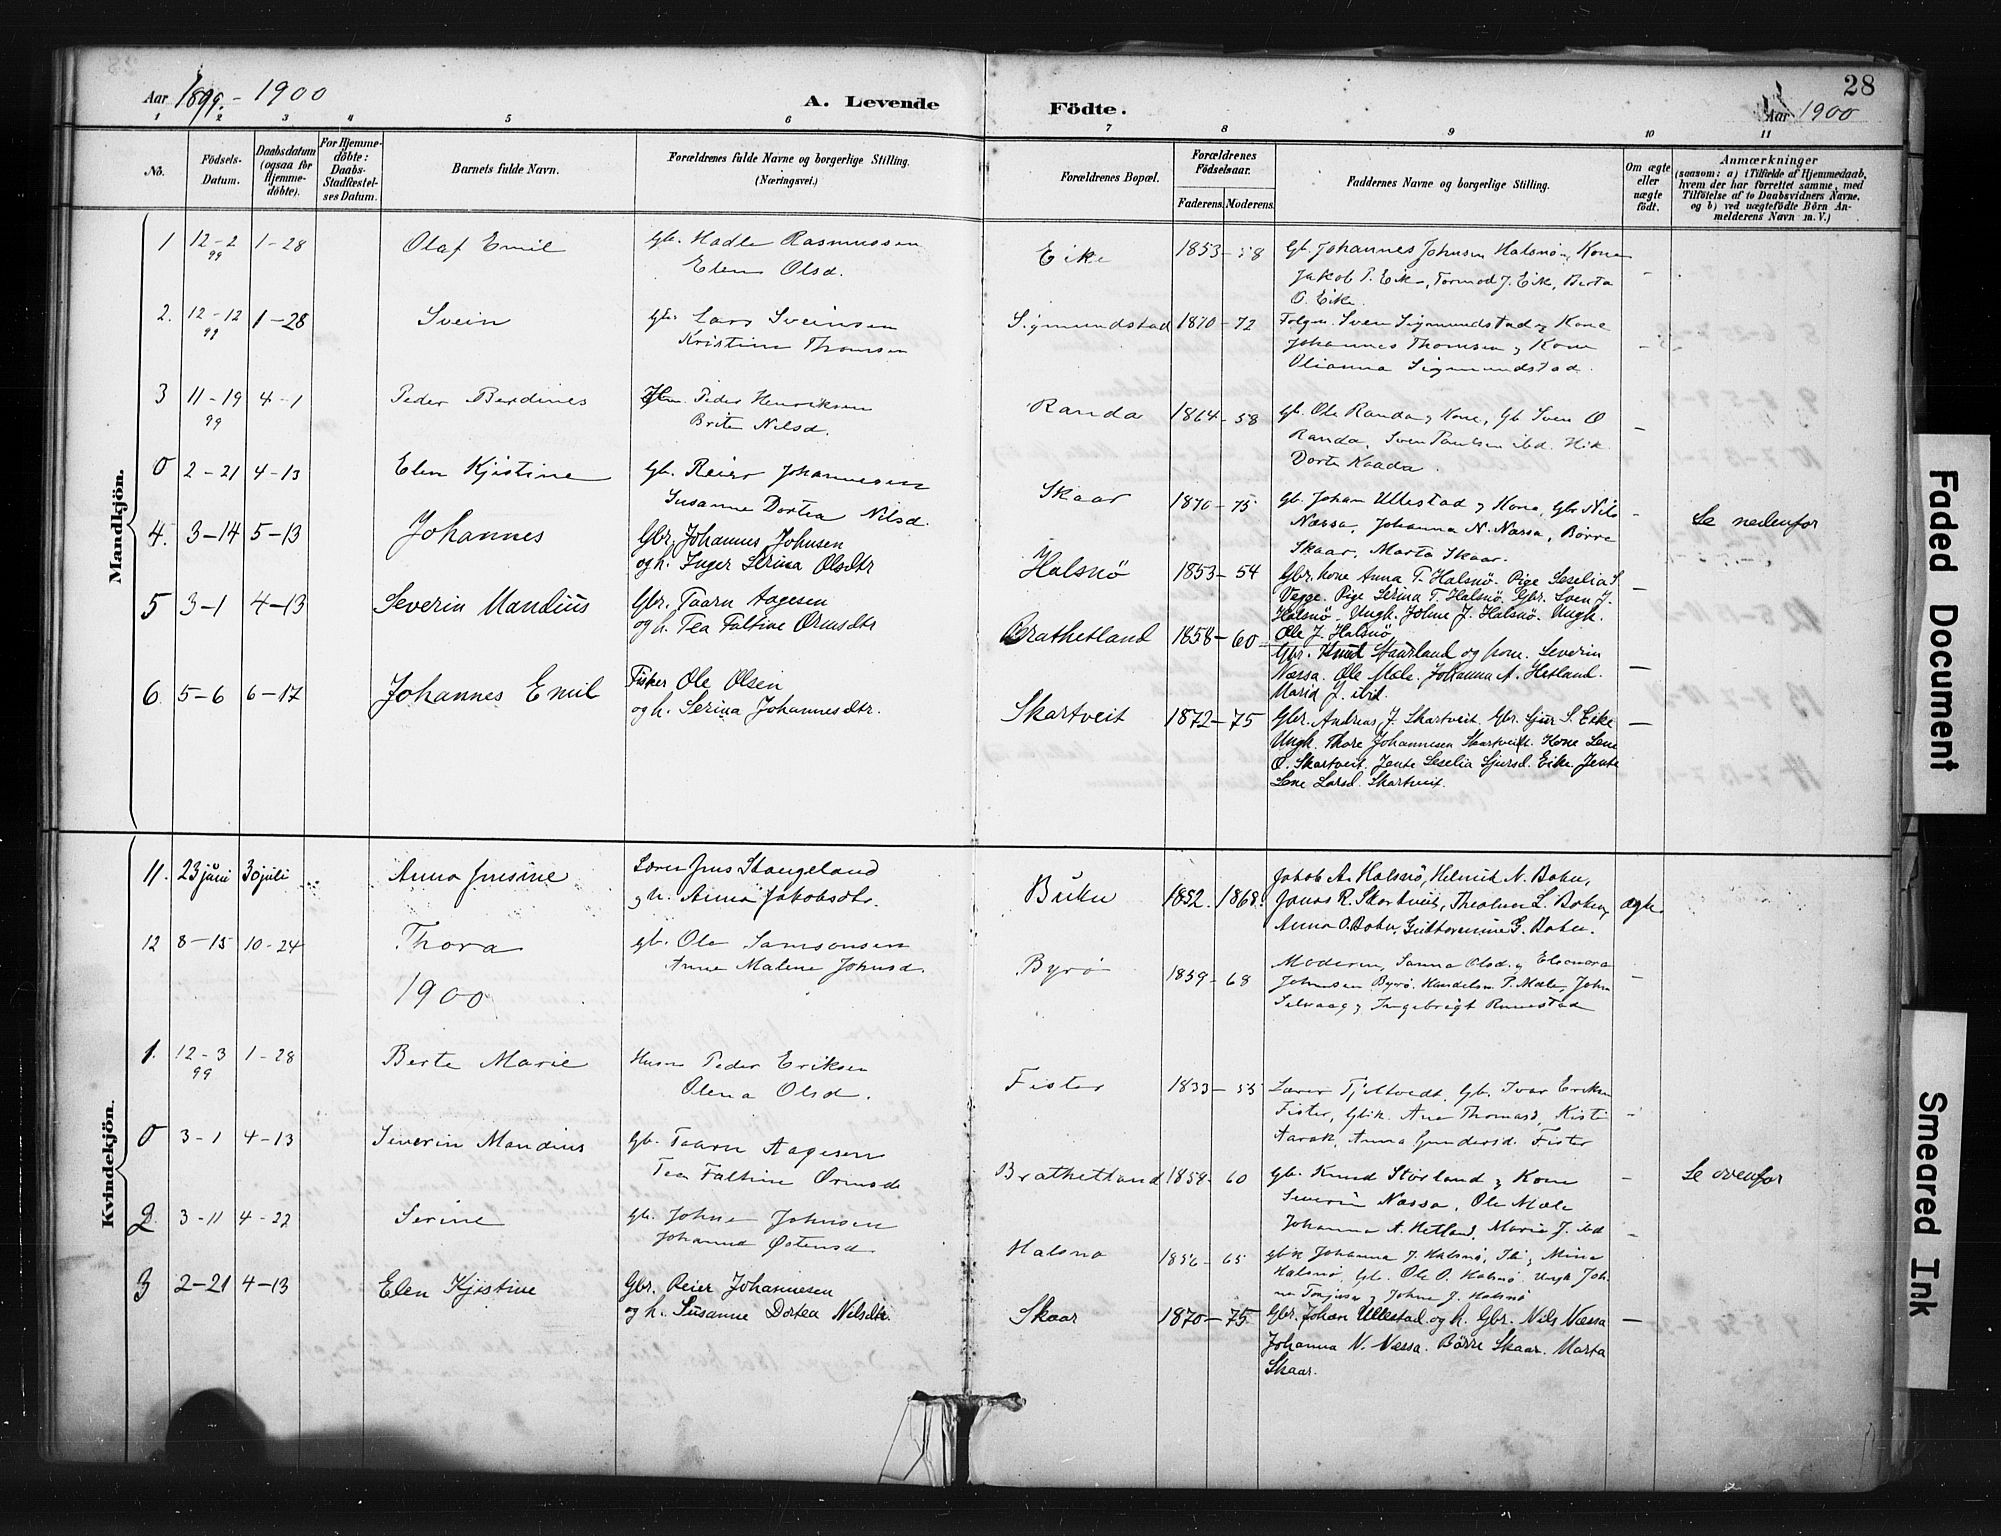 28
Aar 1899 - 1900
A. Levende Födte.
Aar 1900
1 2 3 4 5 6 7 8 9 10 11
No.
Födsels-Datum.
Daabsdatum (ogsaa for Hjemmedöbte).
For Hjemmedöbte: Daabs-Stadfæstelses Datum.
Barnets fulde Navn.
Forældrenes fulde Navne og borgerlige Stilling. (Næringsvei.)
Forældrenes Bopæl.
Forældrenes Födselsaar.
Faderens. Moderens.
Faddernes Navne og borgerlige Stilling.
Om ægte eller uægte födt.
Anmærkninger
(saasom: a) i Tilfælde af Hjemmedaab, hvem der har forrettet samme, med Tilföielse af to Daabsvidners Navne, og b) ved uægtefödte Börn Anmelderens Navn m. V.)
Mandkjön.
1 12-2 99 1-28 Olaf Emil
Gb. Hadle Rasmussen
Elen Olsd.
Eike 1853-58
Gb. Johannes Johnsen Halsnø, Kone
Jakob T. Eike, Tormod J. Eike, Berta
O. Eike. -
2. 12-12 99 1-28 Svein
Gb. Lars Sveinsen
Kristine Thomsen
Sigmundstad 1870-72
Folgm. Sven Sigmundstad og Kone
Johannes Thomsen og Kone
Olianna Sigmundstad. -
3 11-19 99 4-1 Peder Berdines
Hm. Peder Henriksen
Brite Nilsd.
Randa 1864-58
Gb. Ole Randa og Kone, Gb Sven O
Randa, Sven Paulsen ibd. Hik.
Dorte Kaada. -
0 2-21 4-13 Elen Kjistine
Gb. Reier Johannesen
Susanne Dortea Nilsd.
Skaar 1870-75
Gb. Johan Ullestad og Kone, Gbr Nils
Næssa, Johanna N. Næssa, Børre
Skaar, Marta Skaar. -
Se nedenfor
4. 3-14 5-13 Johannes
Gbr. Johannes Johnsen
og h. Inger Serina Olsdtr
Halsnö 1853-54
Gbr. kone Anna T. Halsnö. Pige Seselia S.
Vagge. Pige Serina T. Halsnö. Gbr. Sven J.
Halsnö. Ungk. Johne J. Halsnö. Ungk.
Ole J. Halsnö. -
5 3-1 4-13 Severin Mandius
Gbr. Taarn Aagesen
og h. Tea Faltine Ormsdtr
Brathetland 1858-60
Gbr. Knut Staurland og kone. Severin
Næssa. Ole Mæle. Johanna A. Hetland.
Maria J. ibid. -
6 5-6 6-17 Johannes Emil
Fisker Ole Olsen
og h. Serina Johannesdtr.
Skartveit 1872-75
Gbr. Andreas J. Skartveit. Gbr. Sjur S. Eike
Ungk. Thore Johannesen Skartveit. Kone Lene
O. Skartveit. Jente Seselia Sjursd. Eike. Jente
Lene Larsd. Skartveit. -
Kvindekjön.
11. 23 juni 30 juli Anna Jensine
Søren Jens Stangeland
og h. Anna Jakobsdtr.
Bukn 1852. 1868.
Jakob A. Halsnø, Helmik N. Bokn,
Jonas R. Skartveit, Theoline L. Bokn,
Anna O. Bokn, Guttormine G. Bokn. ægte
12 8-15 10-24 Thora
gb. Ole Samsonsen
Anne Malene Johnsd.
Byrø 1859-68
Moderen, Sanna Olsd. og Eleonora
Johnsen Byrø. Handelsm P. Mæle, John
Selvaag og Ingebrigt Runestad -
1900
1. 12-3 99 1-28 Berte Marie
Husm Peder Eriksen
Olena Olsd.
Fister 1833-53
Lærer Tjeltvedt. Gb. Ivar Eriksen
Fister, Gbik. Ane Thomasd, Kisti
Aarak, Anna Gundersd. Fister -
0 3-1 4-13 Severin Mandius
Gb. Taarn Aagesen
Tea Faltine Ormsd
Brathetland 1859-60
Gb. Knud Størland og Kone
Severin Næssa, Ole Mæle
Johanna A. Hetland, Marie J. ibd -
Se ovenfor
2. 3-11 4-22 Serine
gb. Johne Johnsen
Johanne Østensd.
Halsnø 1856-65
gbk Johanna J. Halsnø, Mina
Halsnø, Gb. Ole O. Halsnø. Ungk Joh-
Johne J. Halsnø -
3 2-21 4-13 Elen Kjistine
Gbr. Reier Johannesen
og h. Susanne Dortea Nilsdtr.
Skaar 1870-75
Gbr. Johan Ullestad og h. Gbr. Nils Næssa
Johanna N. Næssa. Börre Skaar. Marta
Skaar. -
Faded Document
Smeared Ink